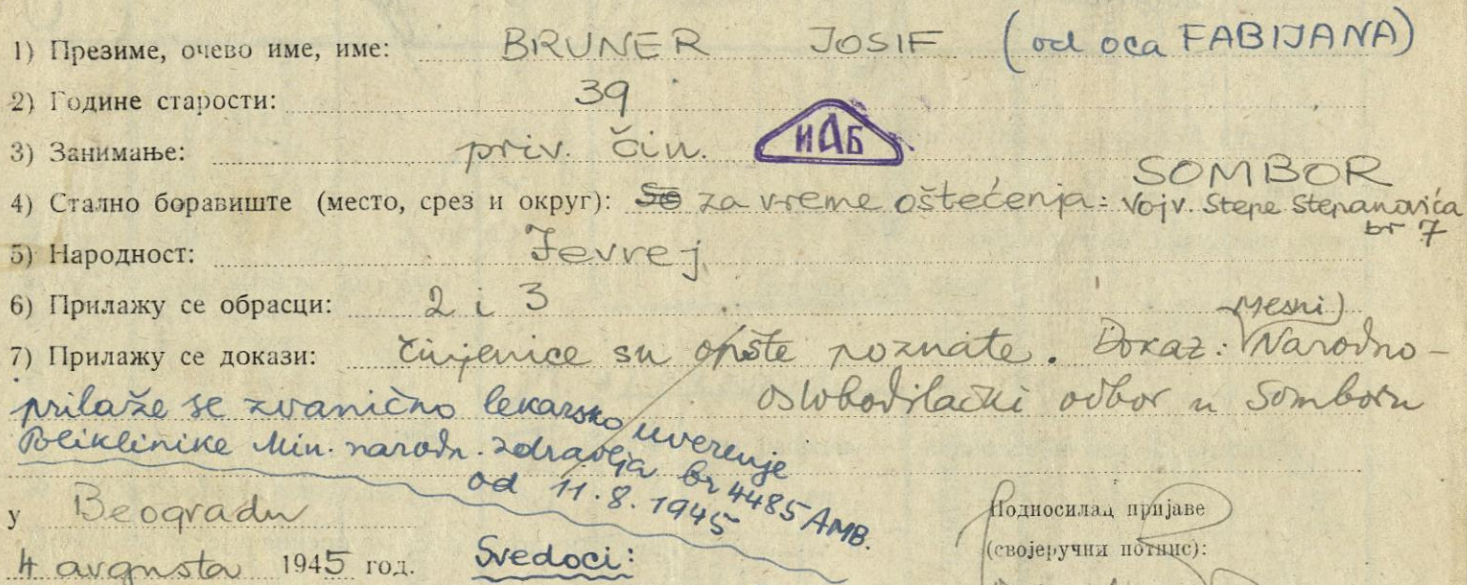 1) Презиме, очево име, име: BRUNER JOSIF (od oca FABIJANA)
2) Године старости: 39
3) Занимање: priv. čin. ИАБ
SOMBOR
4) Стално боравиште (место, срез и округ): So za vreme oštećenja: Vojv. Stepe Stepanovića
br 7
5) Народност: Jevrej
6) Прилажу се обрасци: 2 i 3
mesni)
7) Прилажу се докази: činjenice su opšte poznate. Dokaz: Narodno-
oslobodilački odbor u Somboru
prilaže se zvanično lekarsko uverenje
Poliklinike Min. narodn. zdravlja br 4485 AMB.
od 11.8.1945
у Beogradu
Подносилац пријаве
4 avgusta 1945 год. Svedoci:
(својеручни потпис):